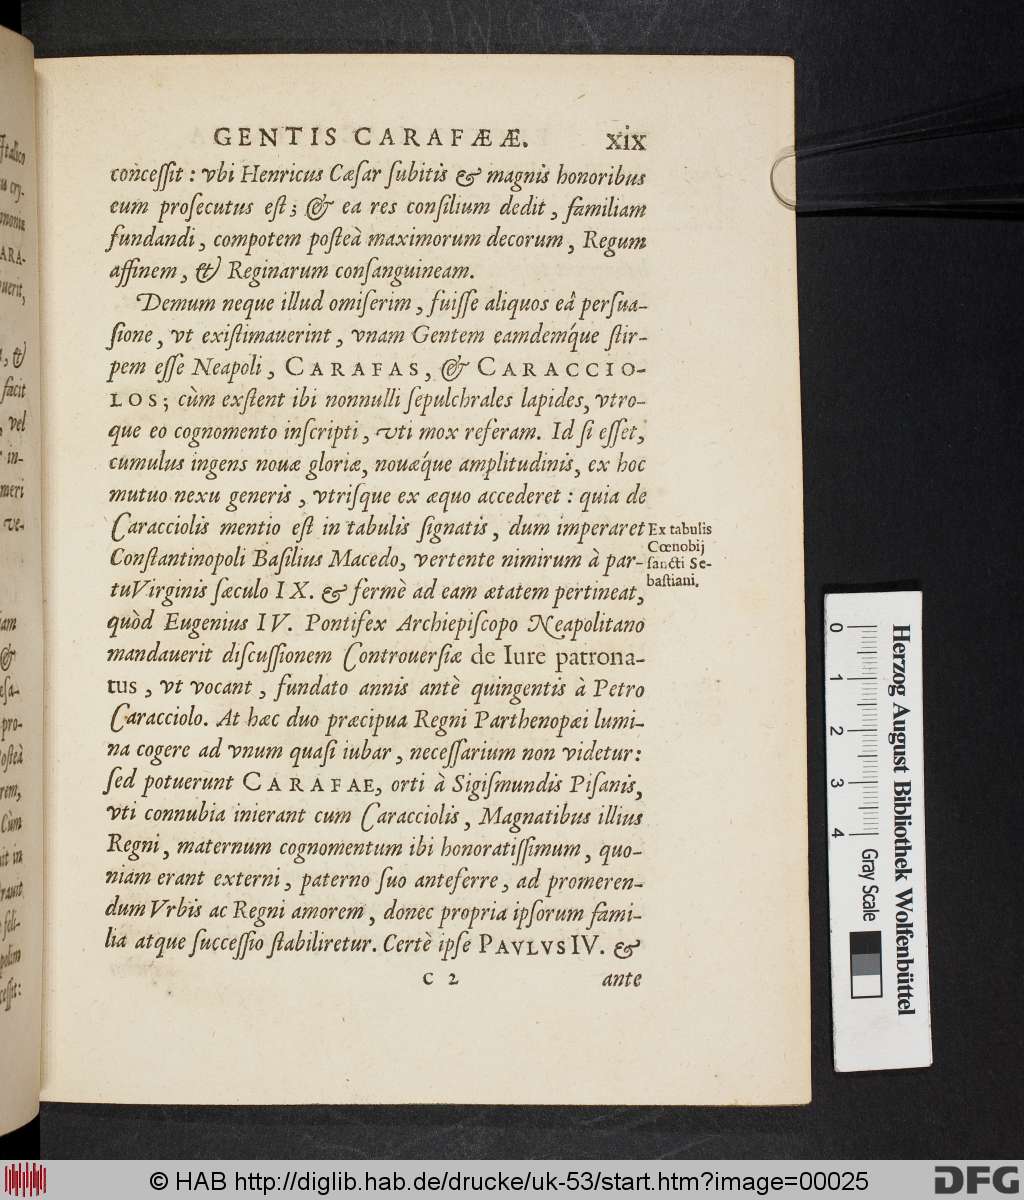 GENTIS CARAFÆÆ. xix
conceſſit : vbi Henricus Cæſar ſubitis & magnis honoribus
eum proſecutus eſt ; & ea res conſilium dedit , familiam
fundandi , compotem poſteà maximorum decorum , Regum
affinem , & Reginarum conſanguineam.
Demum neque illud omiſerim , fuiſſe aliquos eâ perſua-
ſione , vt exiſtimauerint , vnam Gentem eamdemq́ue ſtir-
pem eſſe Neapoli , CARAFAS, & CARACCIO-
LOS; cùm exſtent ibi nonnulli ſepulchrales lapides, vtro-
que eo cognomento inſcripti , vti mox referam. Id ſi eſſet,
cumulus ingens nouæ gloriæ, nouæq́ue amplitudinis, ex hoc
mutuo nexu generis , vtriſque ex æquo accederet : quia de
Caracciolis mentio eſt in tabulis ſignatis , dum imperaret
Conſtantinopoli Baſilius Macedo, vertente nimirum à par-
tu Virginis ſæculo IX. & fermè ad eam ætatem pertineat,
quòd Eugenius IV. Pontifex Archiepiſcopo Neapolitano
mandauerit diſcuſſionem Controuerſiæ de Iure patrona-
tus , vt vocant , fundato annis antè quingentis à Petro
Caracciolo. At hæc duo præcipua Regni Parthenopæi lumi-
na cogere ad vnum quaſi iubar , neceſſarium non videtur:
ſed potuerunt CARAFAE, orti à Sigiſmundis Piſanis,
vti connubia inierant cum Caracciolis , Magnatibus illius
Regni , maternum cognomentum ibi honoratiſſimum , quo-
niam erant externi , paterno ſuo anteferre , ad promeren-
dum Vrbis ac Regni amorem , donec propria ipſorum fami-
lia atque ſucceſſio ſtabiliretur. Certè ipſe PAVLVS IV. &
c 2 ante
Ex tabulis
Cœnobij
ſancti Se-
baſtiani.
Italico
cry-
ARA-
uerit,
, &
facit
, vel
in-
meri
ve-
iam
&
eſa-
pro-
oſteà
rem,
Cùm
it in
rauit
feli-
polim
ceſſit:
0 1 2 3 4
Gray Scale
Herzog August Bibliothek Wolfenbüttel
© HAB http://diglib.hab.de/drucke/uk-53/start.htm?image=00025
DFG